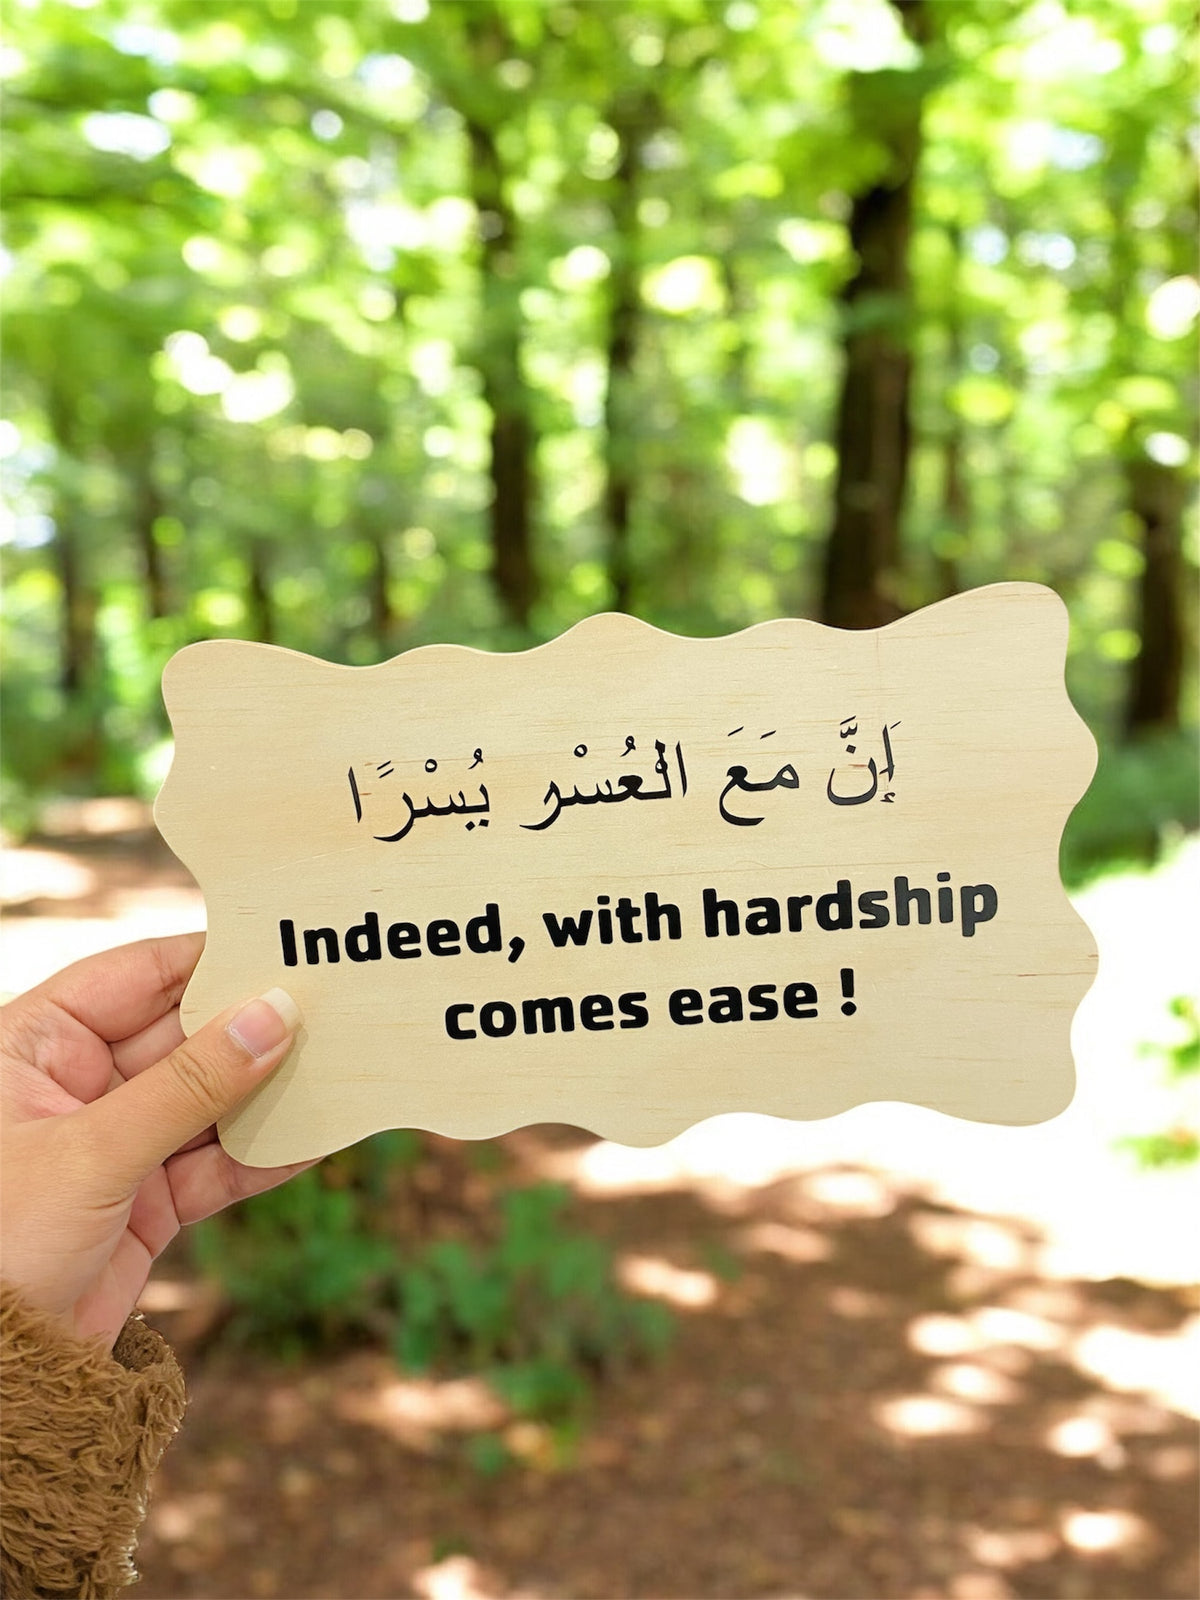 إِنَّ مَعَ الْعُسْر يُسْرًا
Indeed, with hardship
comes ease !